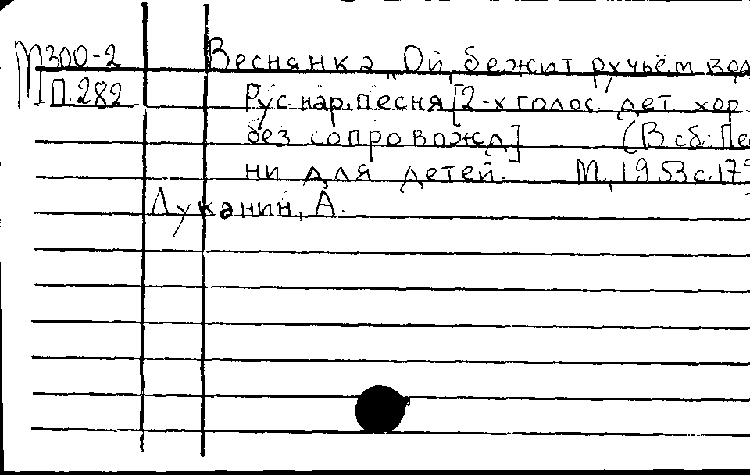 М300-2 Веснянка „Ой, бежит ручьём вод
П.282 Рус нар. песня [2-х голос. дет. хор
без сопровожд] (В сб: Пе
ни для детей. М, 1953 с.175
Луканин, А.